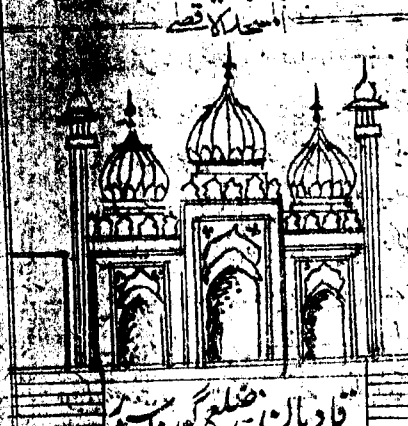 المسجد الاقصٰی
قادیان ضلع گورداسپور